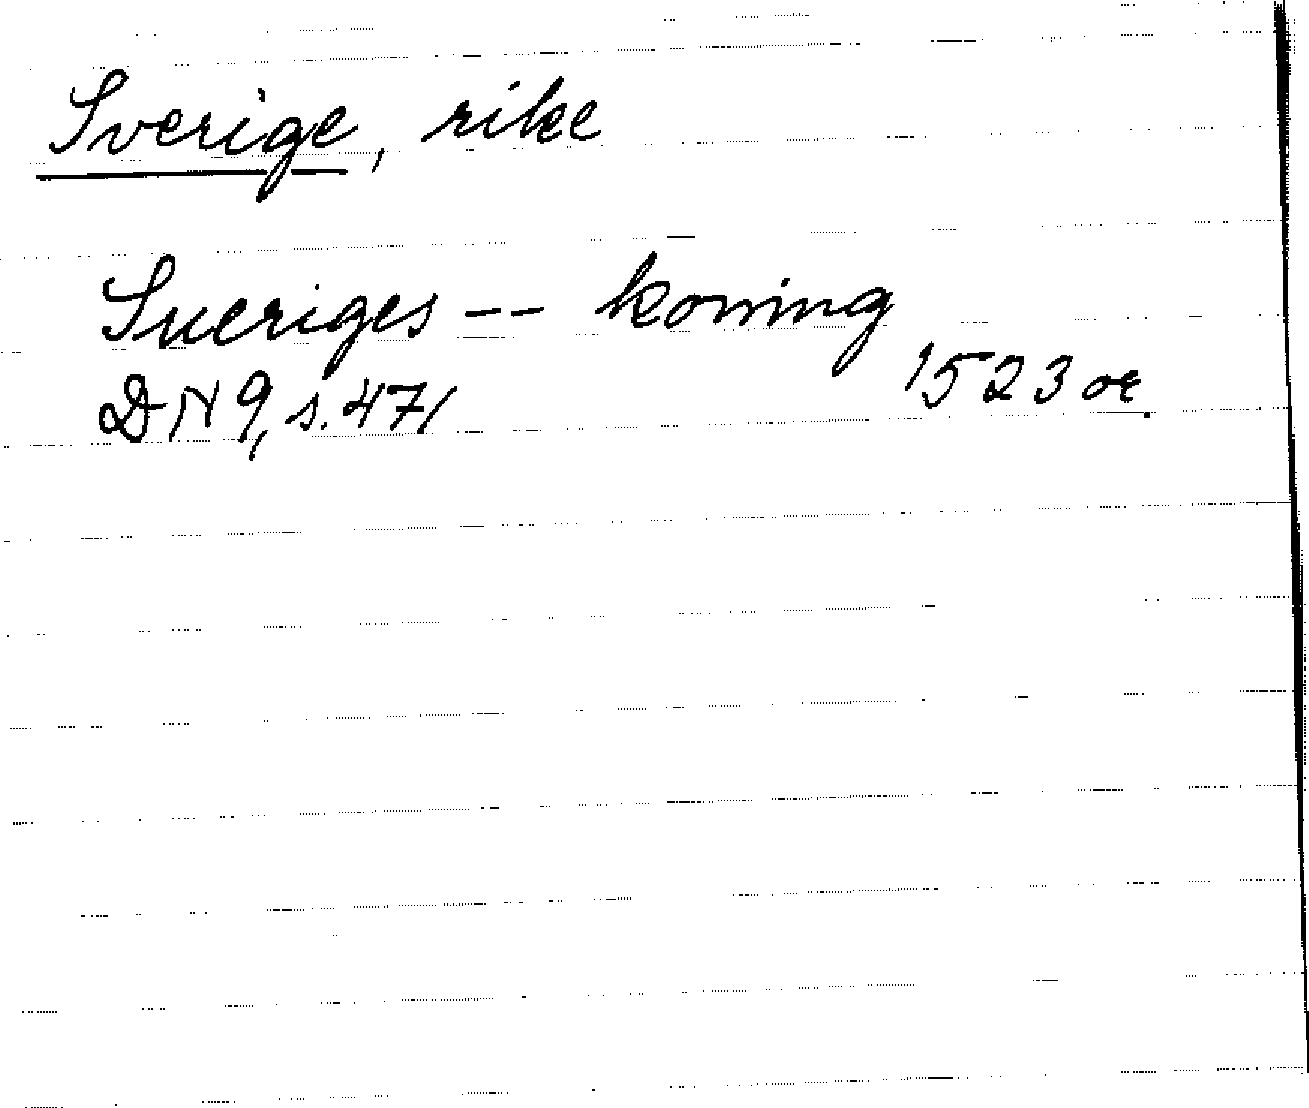 Sverige, rike
Sueriges -- koning
DN 9, s. 471 1523 or.